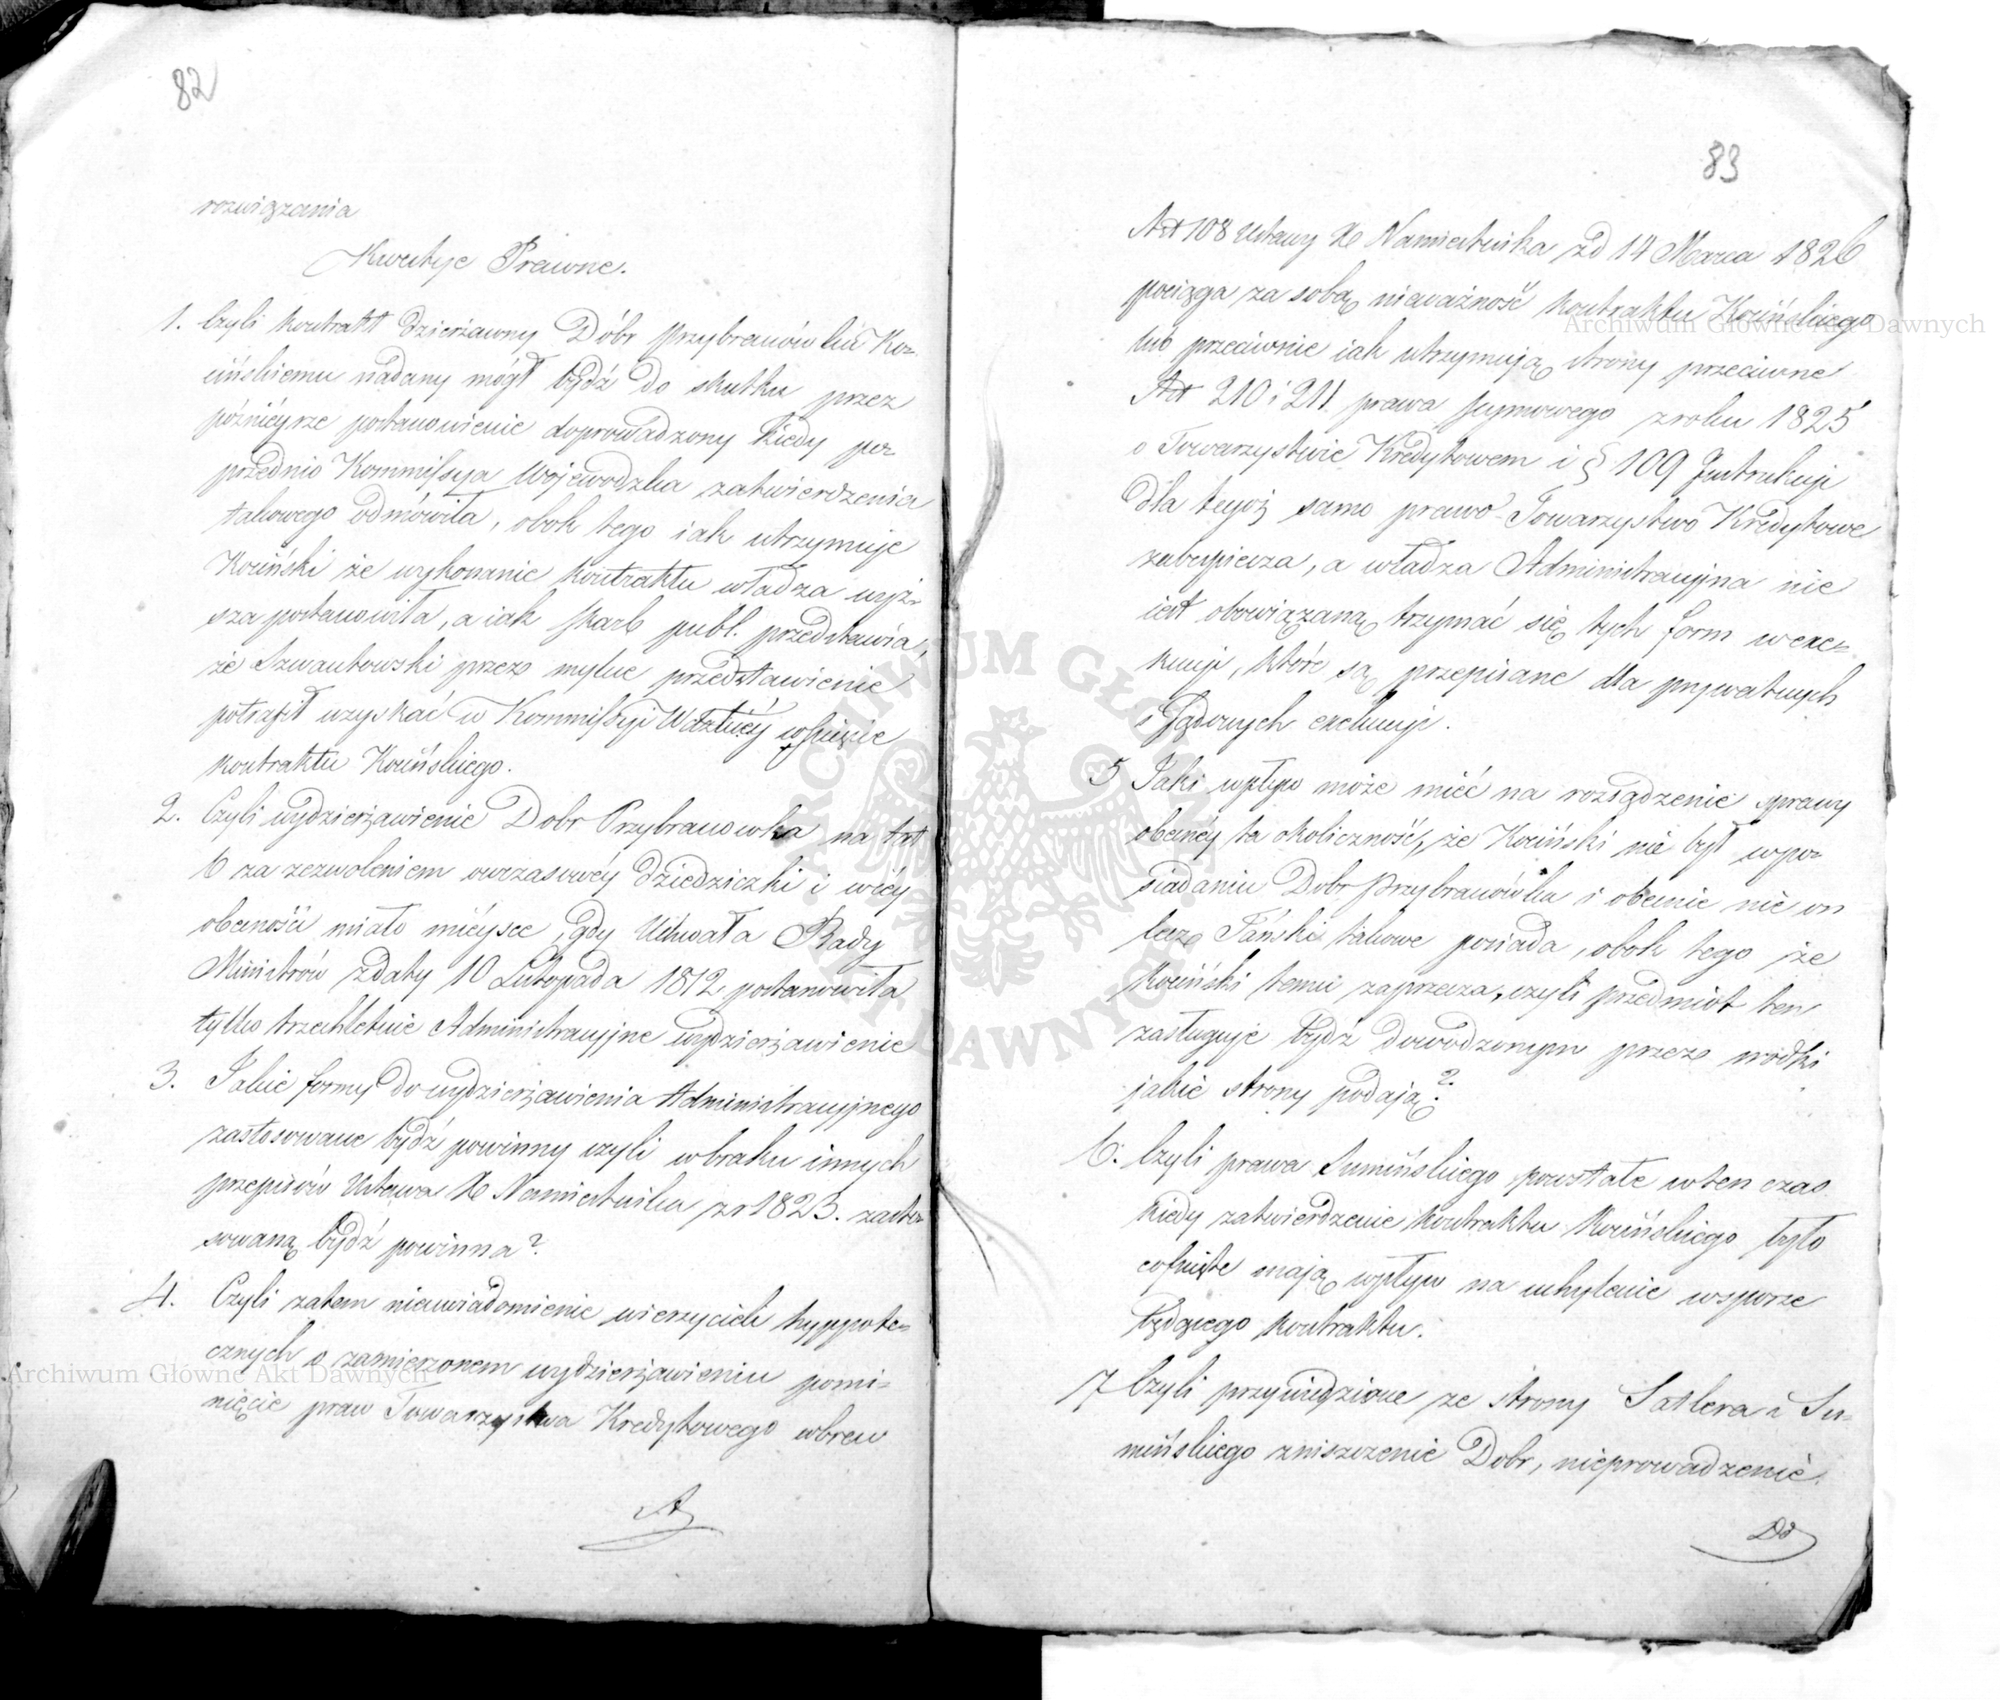 82
rozwiązania
Kwestye Prawne.
1. Czyli kontrakt dzierżawny Dóbr Przybranówka Ko-
cińskiemu nadany mógł bydź do skutku przez
późniéysze postanowienie doprowadzony kiedy po-
przednio Kommissya Wojewodzka zatwierdzenia
takowego odmówiła, obok tego iak utrzymuje
Kociński że wykonanie kontraktu władza wyż-
sza postanowiła, a iak Skarb publ. przedstawia,
że Szwantowski przez mylne przedstawienie
potrafił uzyskać w Kommissyi cofnięcie
kontraktu Kocińskiego.
2. Czyli wydzierżawienie Dobr Przybranowka na lat
6 za zezwoleniem owczasowéy dziedziczki i w iéy
obecności miało miéysce, gdy Uchwała Rady
Ministrów z daty 10 Listopada 1812 postanowiła
tylko trzechletnie Administracyjne wydzierżawienie
3. Jakie formy do wydzierżawienia Administracyjnego
zastosowane bydź powinny czyli w braku innych
przepisów Ustawa Xe Namiestnika z r 1823. zasto-
sowaną bydź powinna?
4. Czyli zatem nieuwiadomienie wierzycieli hyppote-
cznych o zamierzonem wydzierżawieniu pomi-
nięcie praw Towarzystwa Kredytowego wbrew
A
83
Art 108 Ustawy Xe Namiestnika z d 14 Marca 1826
pociąga za sobą nieważność kontraktu Kocińskiego
lub przeciwnie iak utrzymują strony przeciwne
Art 210 i 211. prawa seymowego z roku 1825
o Towarzystwie Kredytowem i § 109 Instrukcyi
dla tegoż samo prawo Towarzystwo Kredytowe
zabezpiecza, a władza Administracyjna nie
iest obowiązaną trzymać się tych form w exe-
kucyi, które są przepisane dla prywatnych
i Sądowych exekucyi.
5 Jaki wpływ może mieć na rozsądzenie sprawy
obecnéy ta okoliczność, że Kociński nie był w po-
siadaniu Dobr Przybranówka i obecnie nie on
lecz Fański takowe posiada, obok tego że
Kociński temu zaprzecza, czyli przedmiot ten
zasługuje bydź dowodzonym przez srodki
jakie strony podają?
6. Czyli prawa Sumińskiego powstałe w ten czas
kiedy zatwierdzenie kontraktu Kocińskiego było
cofnięte mają wpływ na uchylenie w sporze
będącego kontraktu.
7 Czyli przywiedzione ze strony Satlera i Su-
mińskiego zniszczenie Dobr, nieprowadzenie
Do
Archiwum Główne Akt Dawnych
Archiwum Główne Akt Dawnych
ARCHIWUM GŁÓWNE AKT DAWNYCH